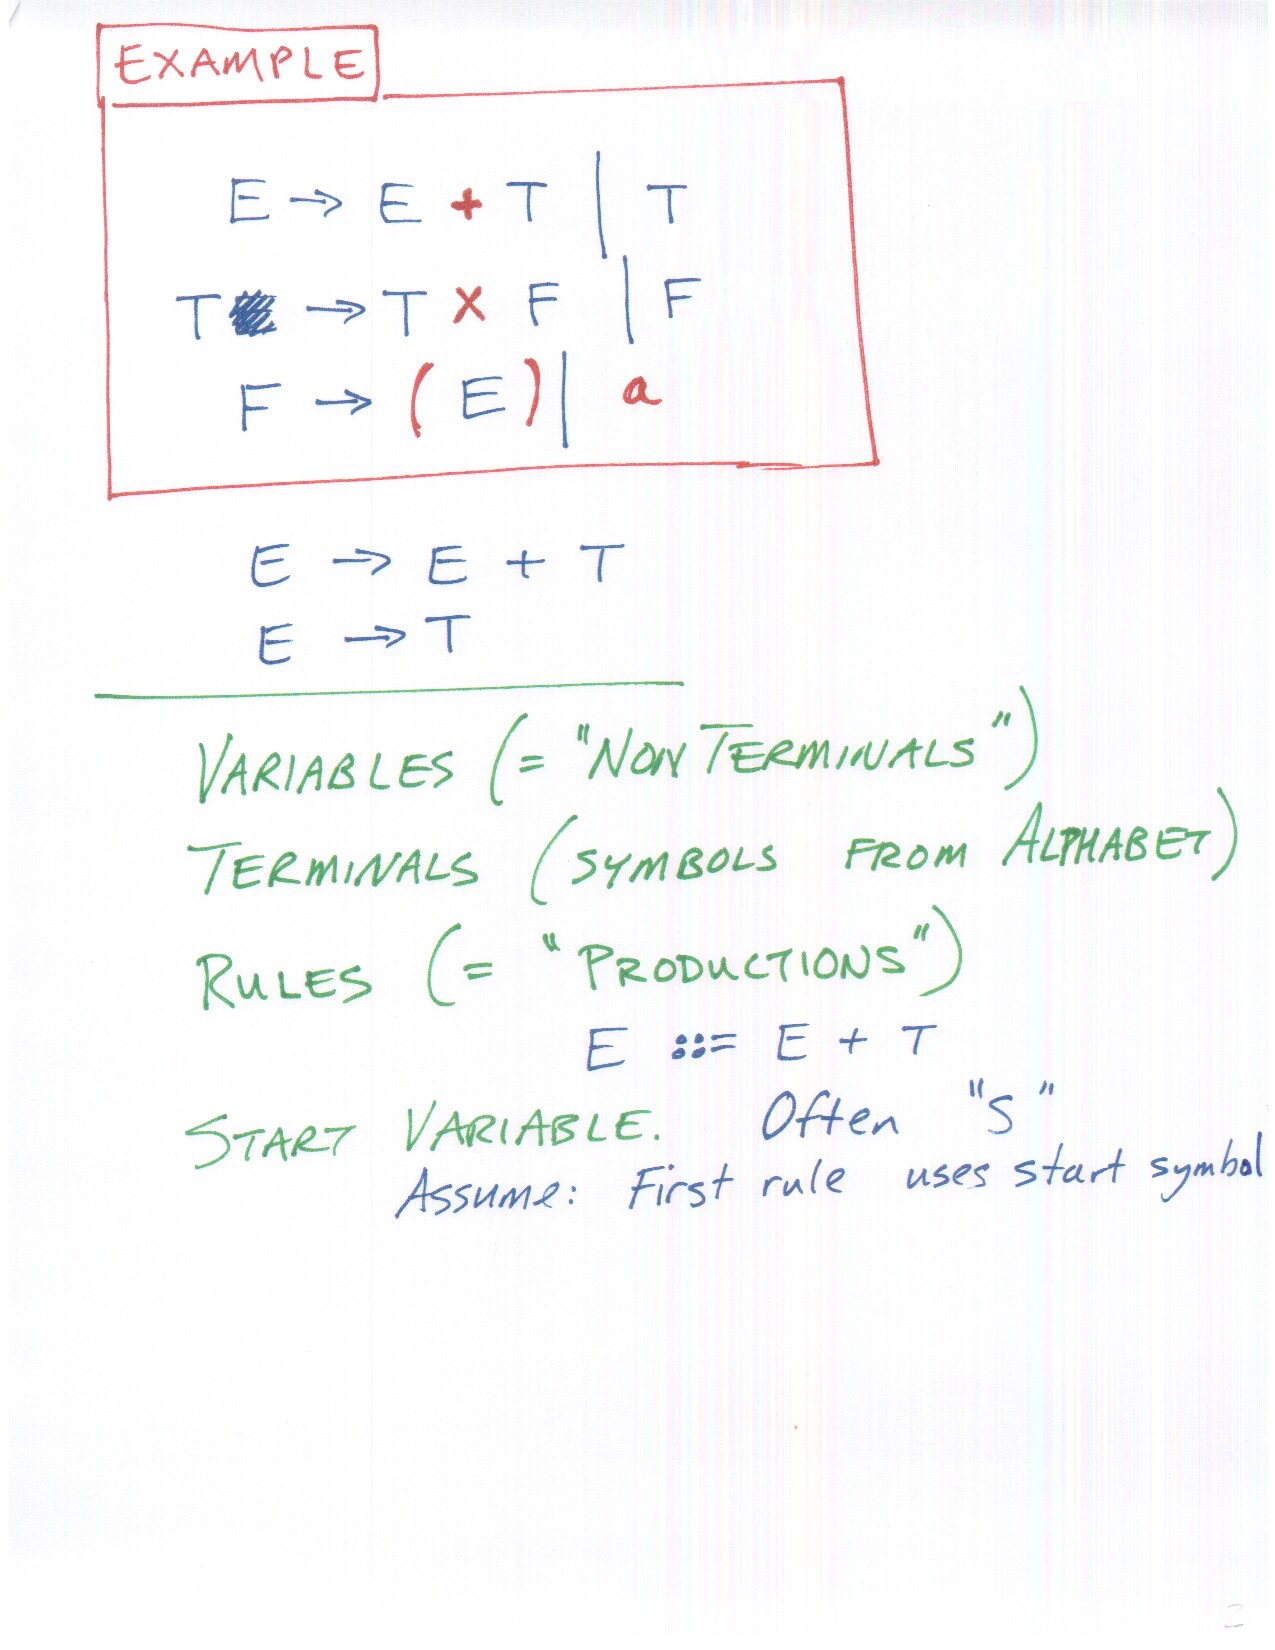 EXAMPLE
E → E + T | T
T → T × F | F
F → ( E ) | a
E → E + T
E → T
VARIABLES (= "NON TERMINALS")
TERMINALS (SYMBOLS FROM ALPHABET)
RULES (= "PRODUCTIONS")
E ::= E + T
START VARIABLE. Often "S"
Assume: First rule uses start symbol